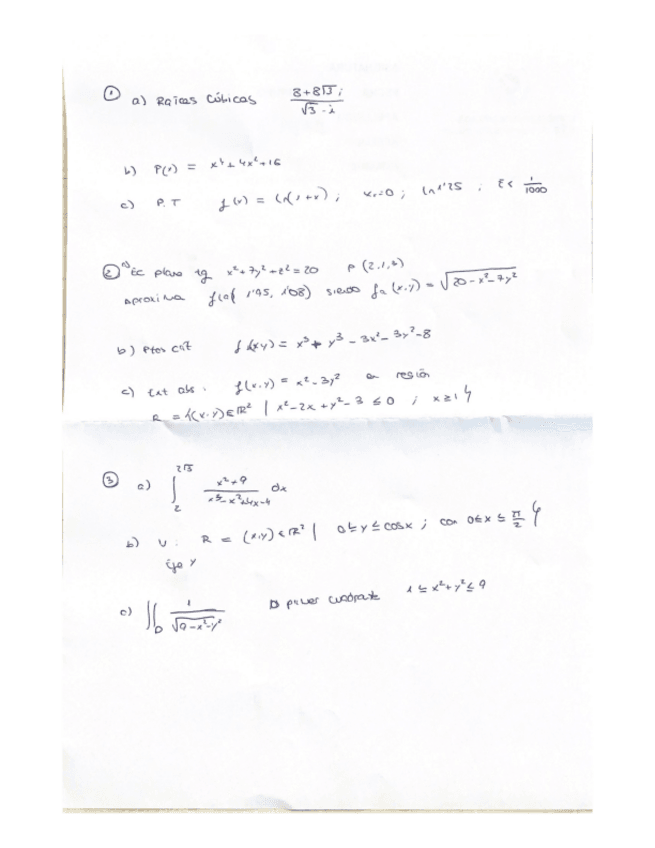 ① a) Raíces Cúbicas (8+8√3 i)/(√3 - i)
b) P(x) = x⁴ + 4x² + 16
c) P.T f(x) = ln(1+x) ; x₀=0 ; ln 1'25 ; E < 1/1000
② a) Ec plano tg x² + 7y² + z² = 20 P (2,1,3)
Aproxima f(1'95, 1'08) siendo (x,y) = √(20-x²-7y²)
b) Ptos crít f(x,y) = x³ + y³ - 3x² - 3y² - 8
c) Ext abs. f(x,y) = x² - 3y² en región
R = {(x,y)∈ℝ² | x² - 2x + y² - 3 ≤ 0 ; x ≥ 1}
③ a) ∫₂^(2√3) (x²+9)/(x³-x²+4x-4) dx
b) V. R = (x,y)∈ℝ² | 0 ≤ y ≤ cosx ; con 0 ≤ x ≤ π/2 }
Eje Y
c) ∬_D 1/√(9-x²-y²) D primer cuadrante 1 ≤ x² + y² ≤ 9